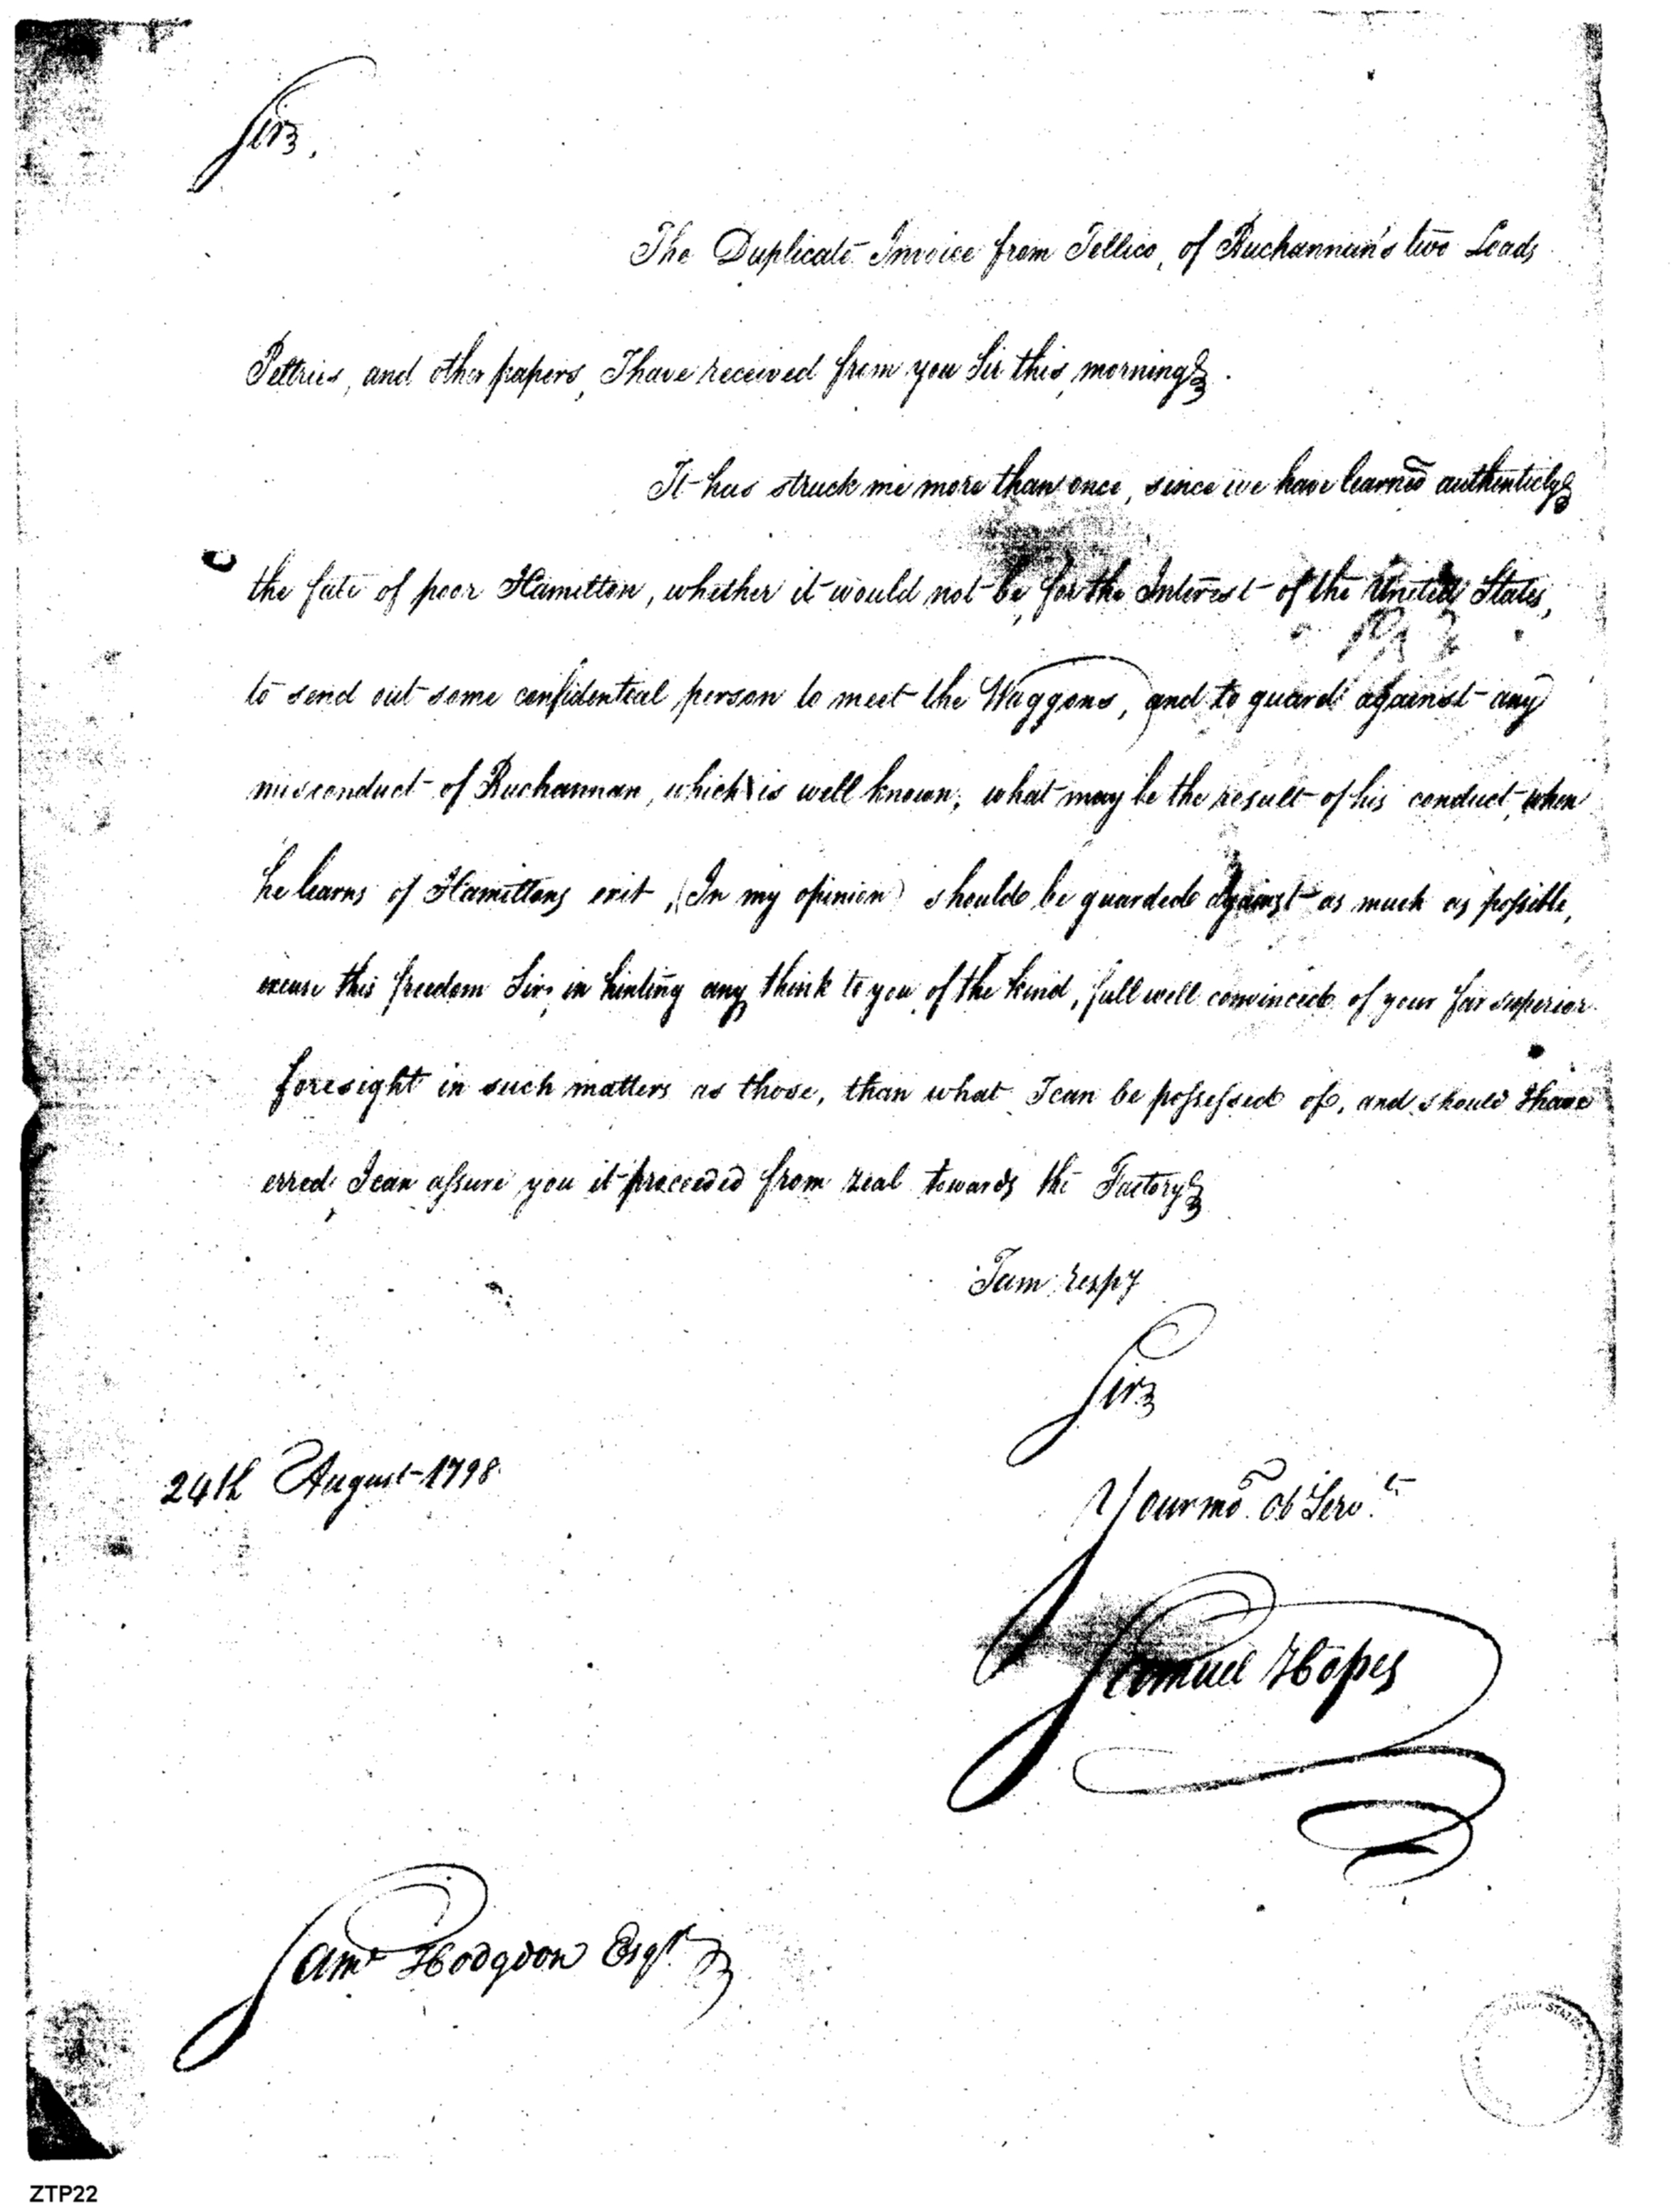 Sir,
The Duplicate Invoice from Tellico, of Buchannan's two Loads
Peltries, and other papers, I have received from you Sir this morning.
It has struck me more than once, since we have learned authenticly
the fate of poor Hamilton, whether it would not be for the Interest of the United States,
to send out some confidential person to meet the Waggons, and to guard against any
misconduct of Buchannan, which is well known, what may be the result of his conduct, when
he learns of Hamiltons exit, (In my opinion) should be guarded against as much as possible,
excuse this freedom Sir, in hinting any think to you of the kind, full well convinced of your far superior
foresight in such matters as those, than what I can be possessed of, and should I have
erred I can assure you it proceeded from zeal towards the Factory
I am respy
Sir
24th August 1798
Your mo. Ob Servt.
Samuel Hopes
Saml Hodgdon Esqr.
UNITED STATES
ZTP22